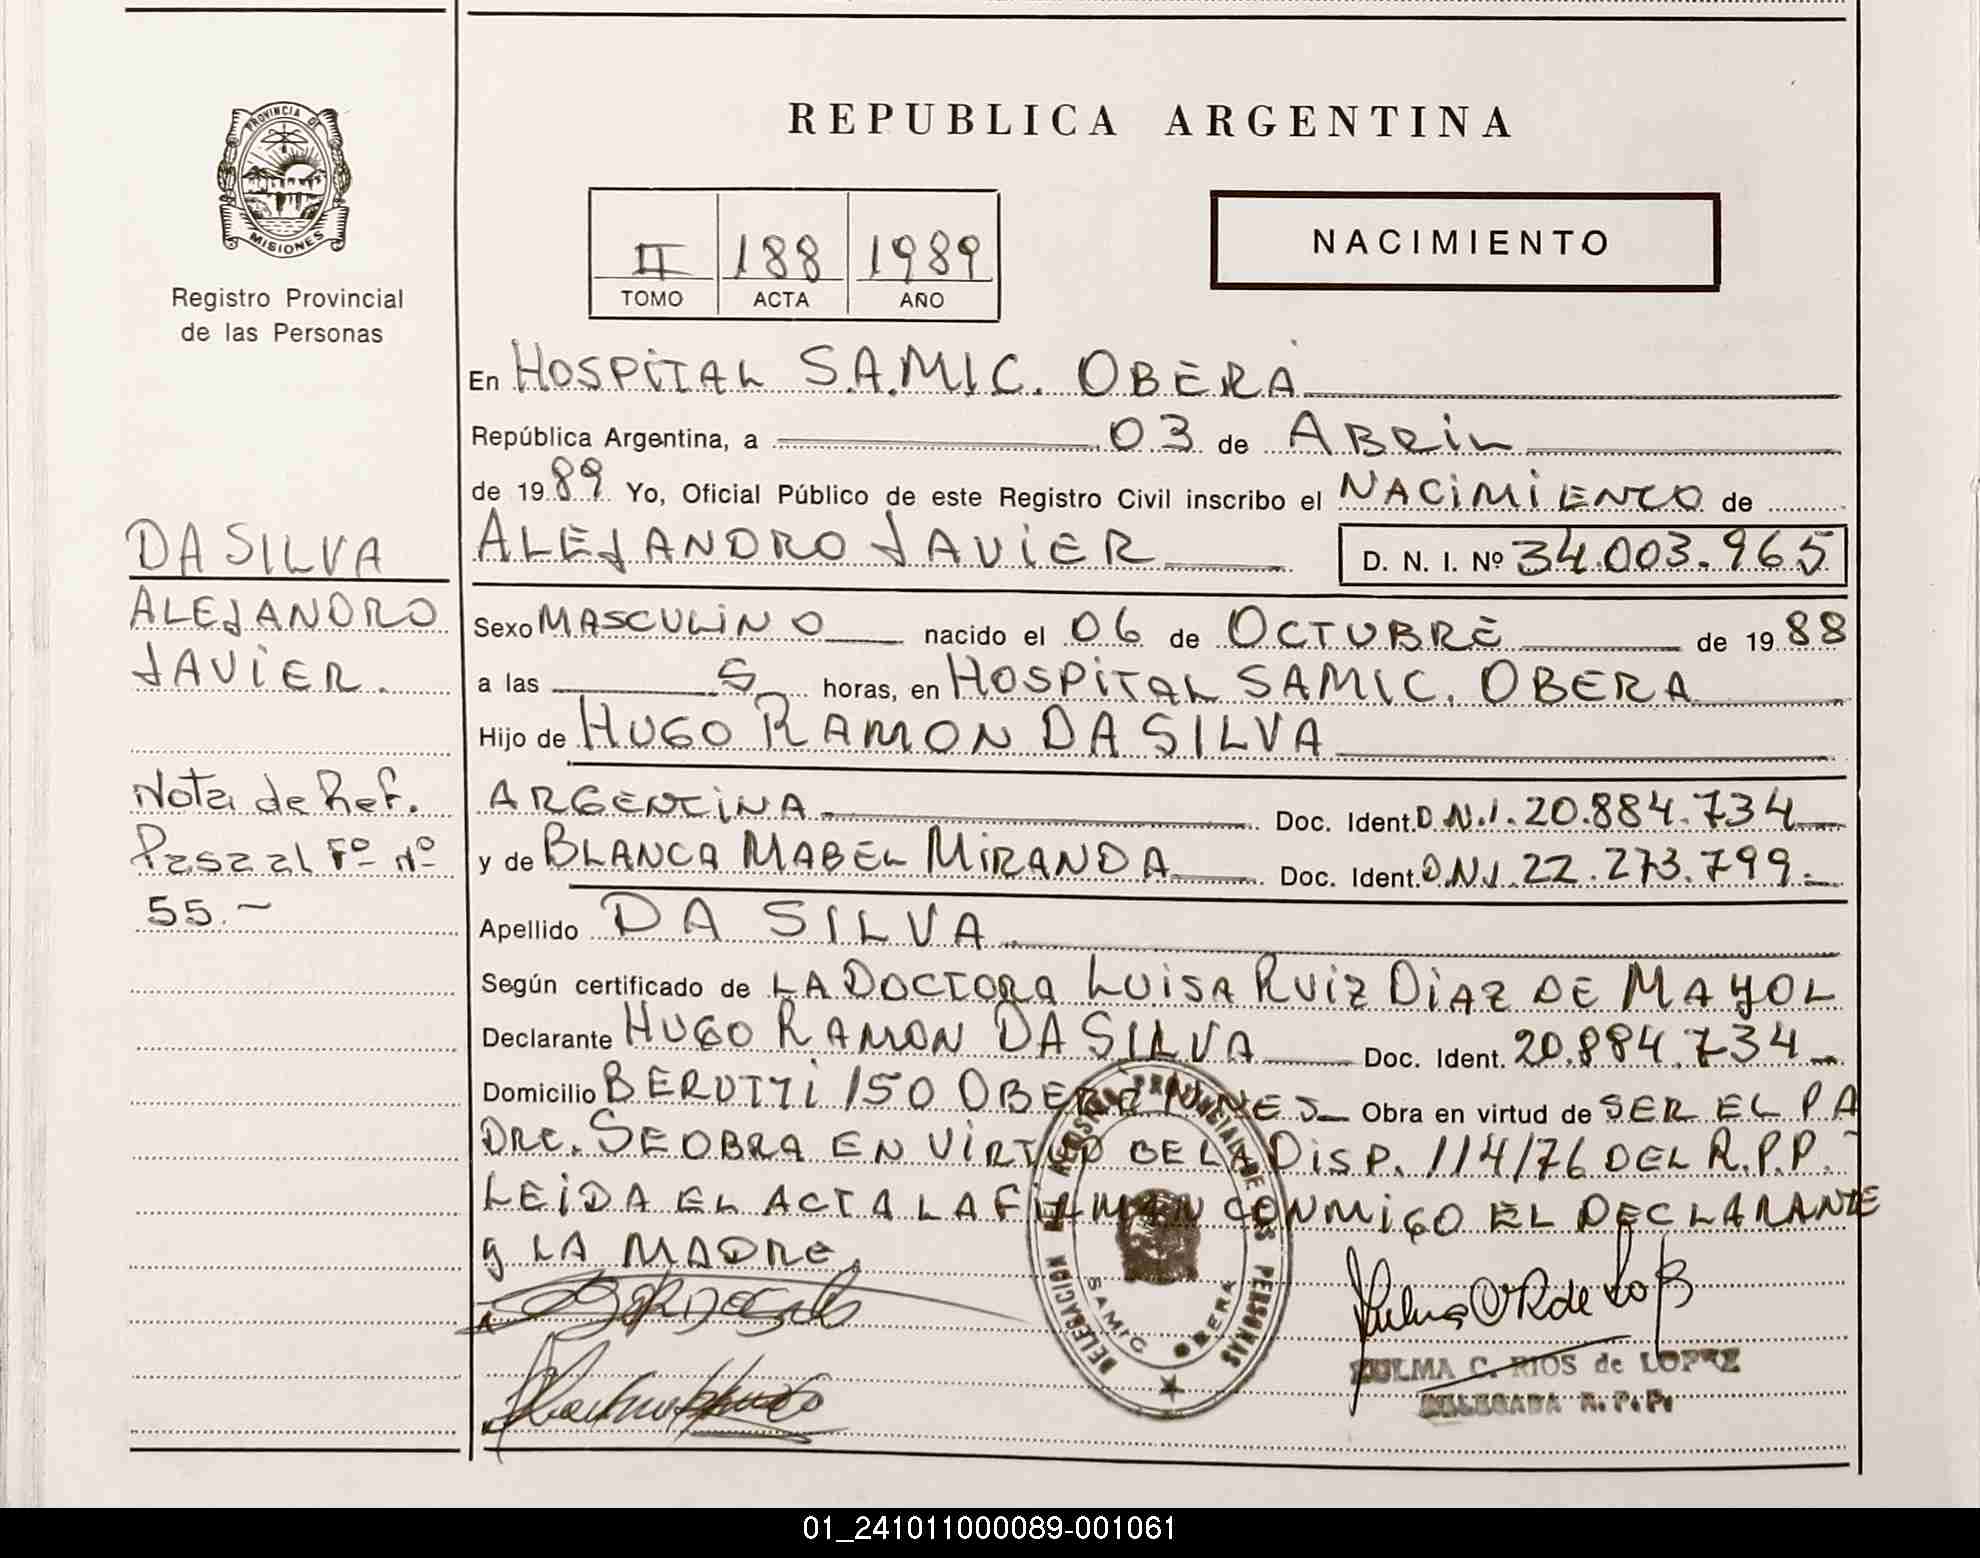 PROVINCIA DE
MISIONES
Registro Provincial
de las Personas
DA SILVA
ALEJANDRO
JAVIER.
Nota de Ref.
Pasa al Fº Nº
55.-
REPUBLICA ARGENTINA
II 188 1989
TOMO ACTA AÑO
NACIMIENTO
En HOSPITAL S.A.M.I.C. OBERÁ
República Argentina, a 03 de ABRIL
de 1989 Yo, Oficial Público de este Registro Civil inscribo el NACIMIENTO de
ALEJANDRO JAVIER D. N. I. Nº 34.003.965
Sexo MASCULINO nacido el 06 de OCTUBRE de 1988
a las 5 horas, en HOSPITAL SAMIC. OBERA
Hijo de HUGO RAMON DA SILVA
ARGENTINA Doc. Ident. D.N.I. 20.884.734
y de BLANCA MABEL MIRANDA Doc. Ident. D.N.I. 22.273.799.-
Apellido DA SILVA
Según certificado de LA DOCTORA LUISA RUIZ DIAZ DE MAYOL
Declarante HUGO RAMON DA SILVA Doc. Ident. 20.884.734
Domicilio BERUTTI 150 OBERÁ Obra en virtud de SER EL PA
DRE. SE OBRA EN VIRTUD DE LA DISP. 114/76 DEL R.P.P.
LEIDA EL ACTA LA FIRMAN CONMIGO EL DECLARANTE
y LA MADRE.
DELEGACION
SAMIC OBERA
PERSONAS
ZULMA C. RIOS de LOPEZ
DELEGADA R.P.P.
01_241011000089-001061